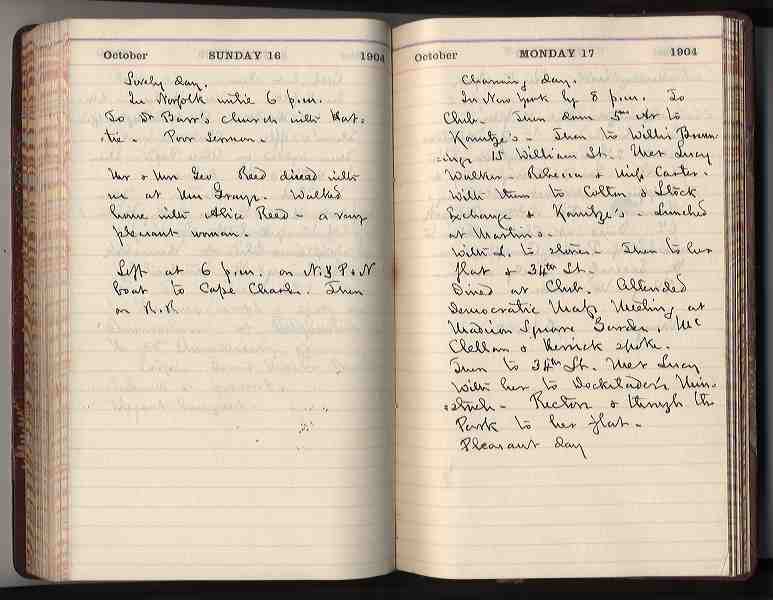 October SUNDAY 16 1904
Lovely day.
In Norfolk until 6 p.m.
To Dr Barr's church with Hat-
tie. Poor sermon.
Mr & Mrs Geo Reed dined with
me at Mrs Grays. Walked
home with Alice Reed - a very
pleasant woman.
Left at 6 p.m. on N.Y P & N
boat to Cape Charles. Then
on R.R.
October MONDAY 17 1904
Charming day.
In New York by 8 To
Club. Then down 5th Av to
Then to Willis
15 William St. Met Lucy
Walker - Rebecca & Miss Carter.
With them to Cotton & Stock
Exchange & Lunched
at
With L. to Then to her
flat & 34th St.
Dined at Club. Attended
Democratic Mass Meeting at
Madison Square Garden. Mc
Clellan & Herrick spoke.
Then to 34th St. Met Lucy
With her to Dockstader's Min-
strels - Rectors & through the
Park to her flat.
Pleasant day